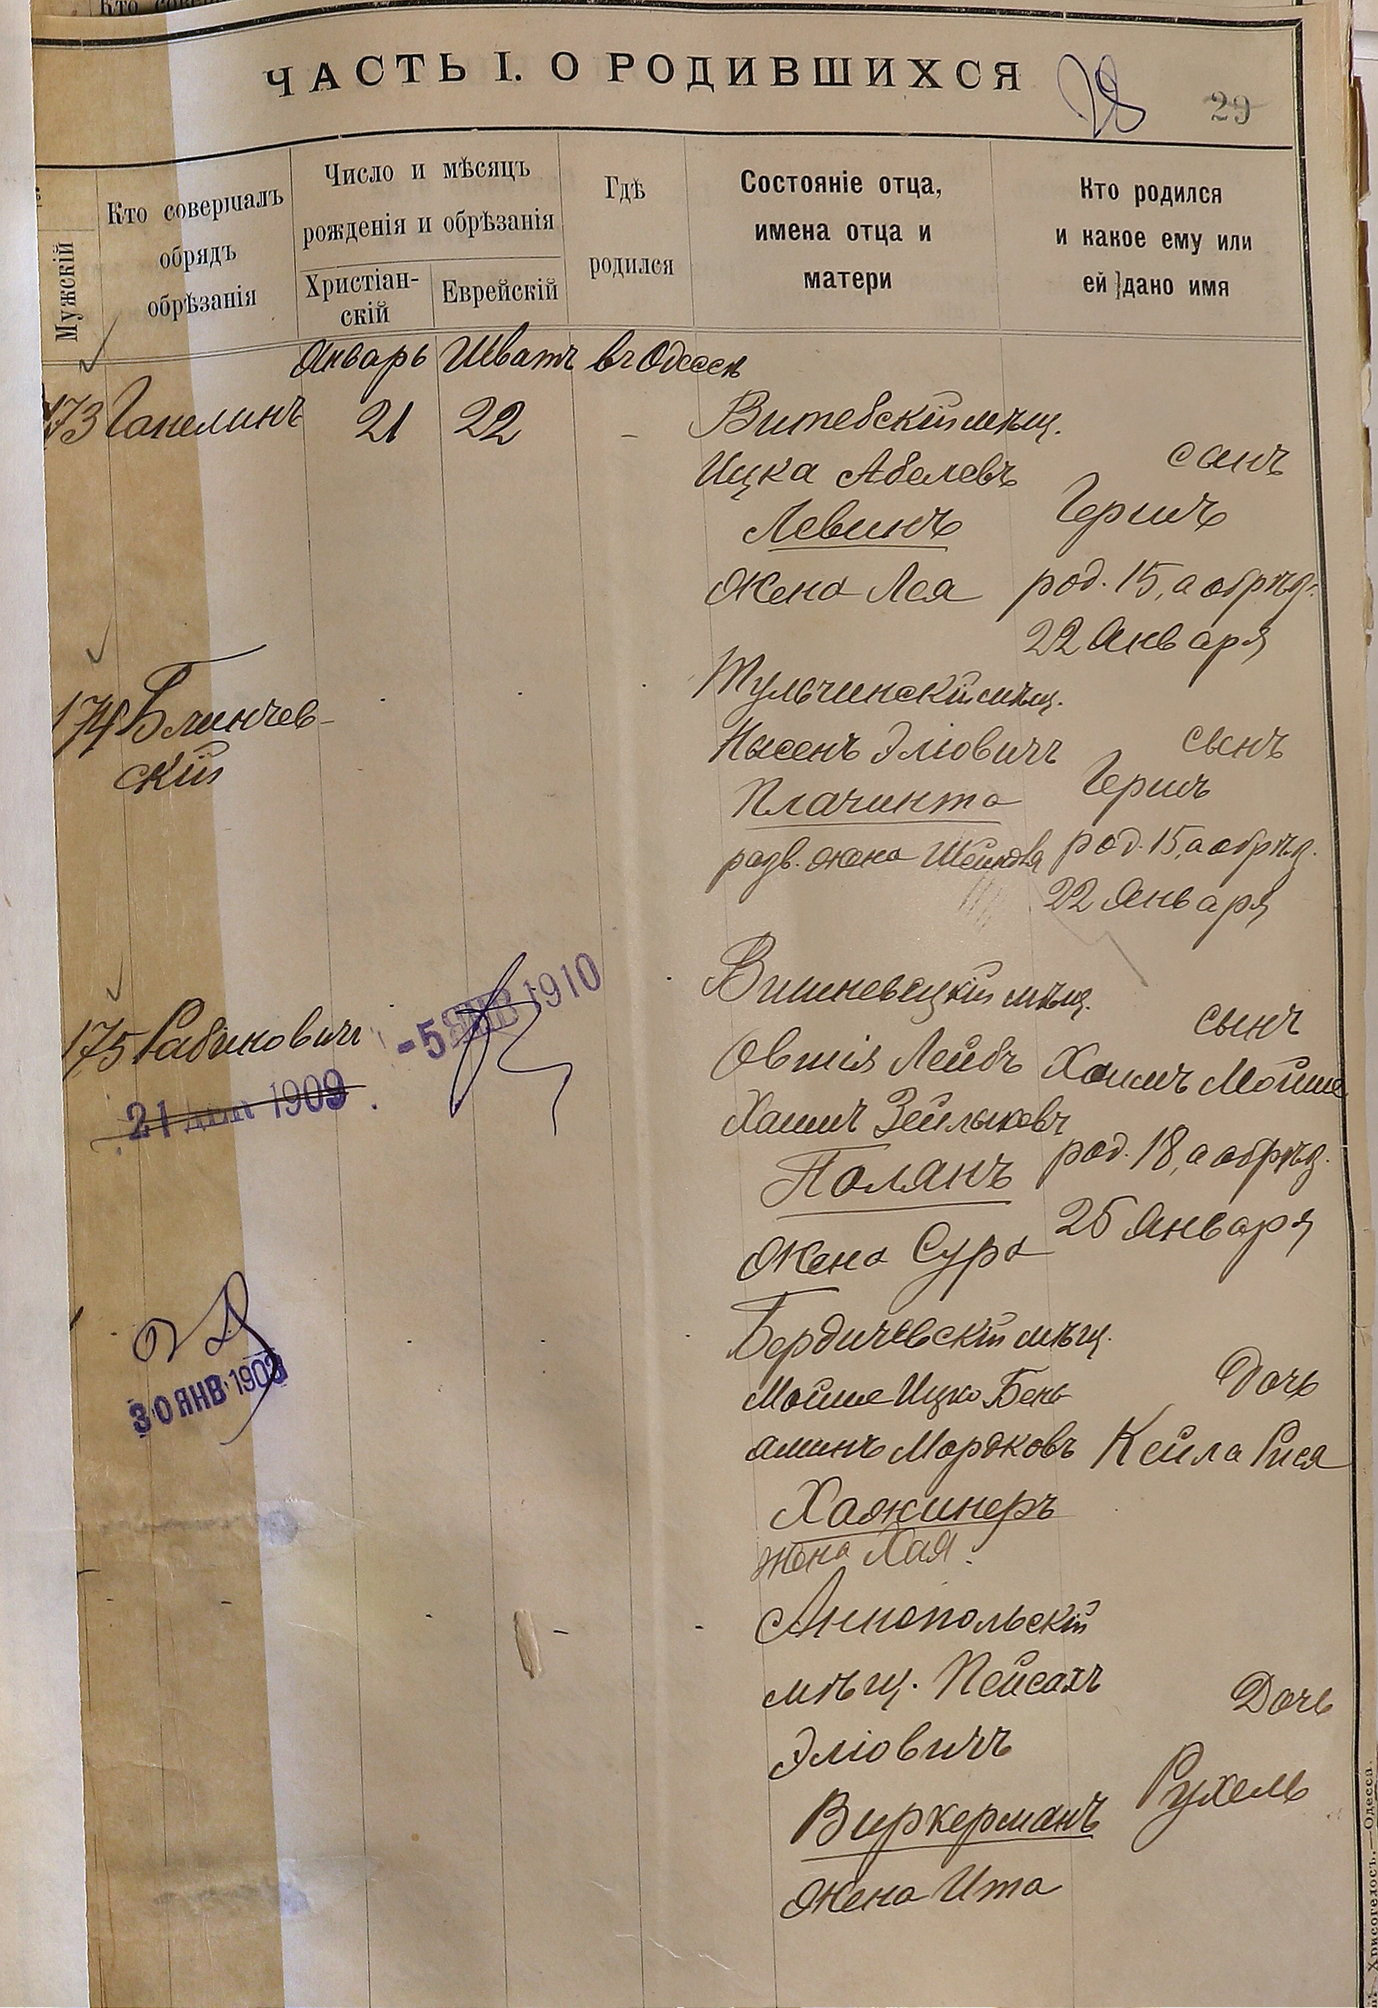 ЧАСТЬ I. О РОДИВШИХСЯ
28
29
Мужскій
Кто совершалъ
обрядъ
обрѣзанія
Число и мѣсяцъ
рожденія и обрѣзанія
Христіан-
скій
Еврейскій
Гдѣ
родился
Состояніе отца,
имена отца и
матери
Кто родился
и какое ему или
ей дано имя
Январь Шватъ въ Одессѣ
173 Ганелинъ 21 22
Витебскій мѣщ.
Ицка Абелевъ
Левинъ
Жена Лея
сынъ
Гершъ
род. 15, а обрѣз.
22 Января
174 Блинчев-
скій
Тульчинскій мѣщ.
Нысенъ Эліовичъ
Плачинта
разв. жена
сынъ
Гершъ
род. 15, а обрѣз.
22 Января
175 Рабиновичъ
-5 ЯНВ 1910
21 1909
Вишневецкій мѣщ.
Овшія Лейбъ
Хаимъ Зейлыковъ
Полянъ
Жена Сура
сынъ
Хаимъ Мойше
род. 18, а обрѣз.
25 Января
30 ЯНВ. 1903
Бердичевскій мѣщ.
Мойше Ицко Бень-
аминъ Мордковъ
Хажинеръ
жена Хая.
Дочь
Кейла Рися
Аннопольскій
мѣщ. Пейсахъ
Эліовичъ
Виркерманъ
Жена Ита
Дочь
Рухель
Хрисогелосъ.—Одесса.